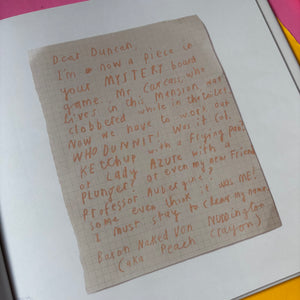 Dear Duncan,
I'm now a piece in
your MYSTERY board
game. Mr Carcass, who
lives in this Mansion, was
clobbered while in the toilet!
Now we have to work out
WHO DUNNIT! Was it Col.
KETCHUP with a frying pan?
or Lady AZURE with a
Plunger? or even my new friend
Professor Aubergine?
some even think it was ME!
I must stay to clear my name.
Baron Naked Von NUDDINGTON
(aka Peach Crayon)